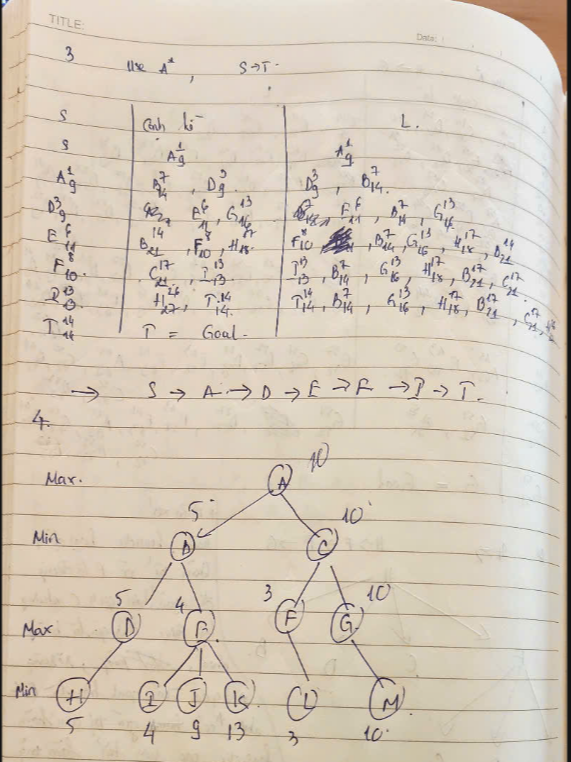 TITLE:
Date:
3 Use A*, S→T.
S | Canh kề | L.
S | A₉¹ | A₉¹
A₉¹ | B₁₄⁷, D₉³ | D₉³, B₁₄⁷.
D₉³ | E₁₁⁶, G₁₆¹³ | E₁₁⁶, B₁₄⁷, G₁₆¹³
E₁₁⁶ | B₂₁¹⁴, F₁₀⁸, H₁₈¹⁷ | F₁₀⁸, B₁₄⁷, G₁₆¹³, H₁₈¹⁷, B₂₁¹⁴
F₁₀⁸ | C₂₁¹⁷, I₁₃¹³ | I₁₃¹³, B₁₄⁷, G₁₆¹³, H₁₈¹⁷, B₂₁¹⁴, C₂₁¹⁷.
I₁₃¹³ | H₂₇²⁶, T₁₄¹⁴ | T₁₄¹⁴, B₁₄⁷, G₁₆¹³, H₁₈¹⁷, B₂₁¹⁴, C₂₁¹⁷
T₁₄¹⁴ | T = Goal.
→ S → A → D → E → F → I → T.
4.
10
Max. A
5 10
Min B C
5 4 3 10
Max D E F G
Min H I J K L M
5 4 9 13 3 10